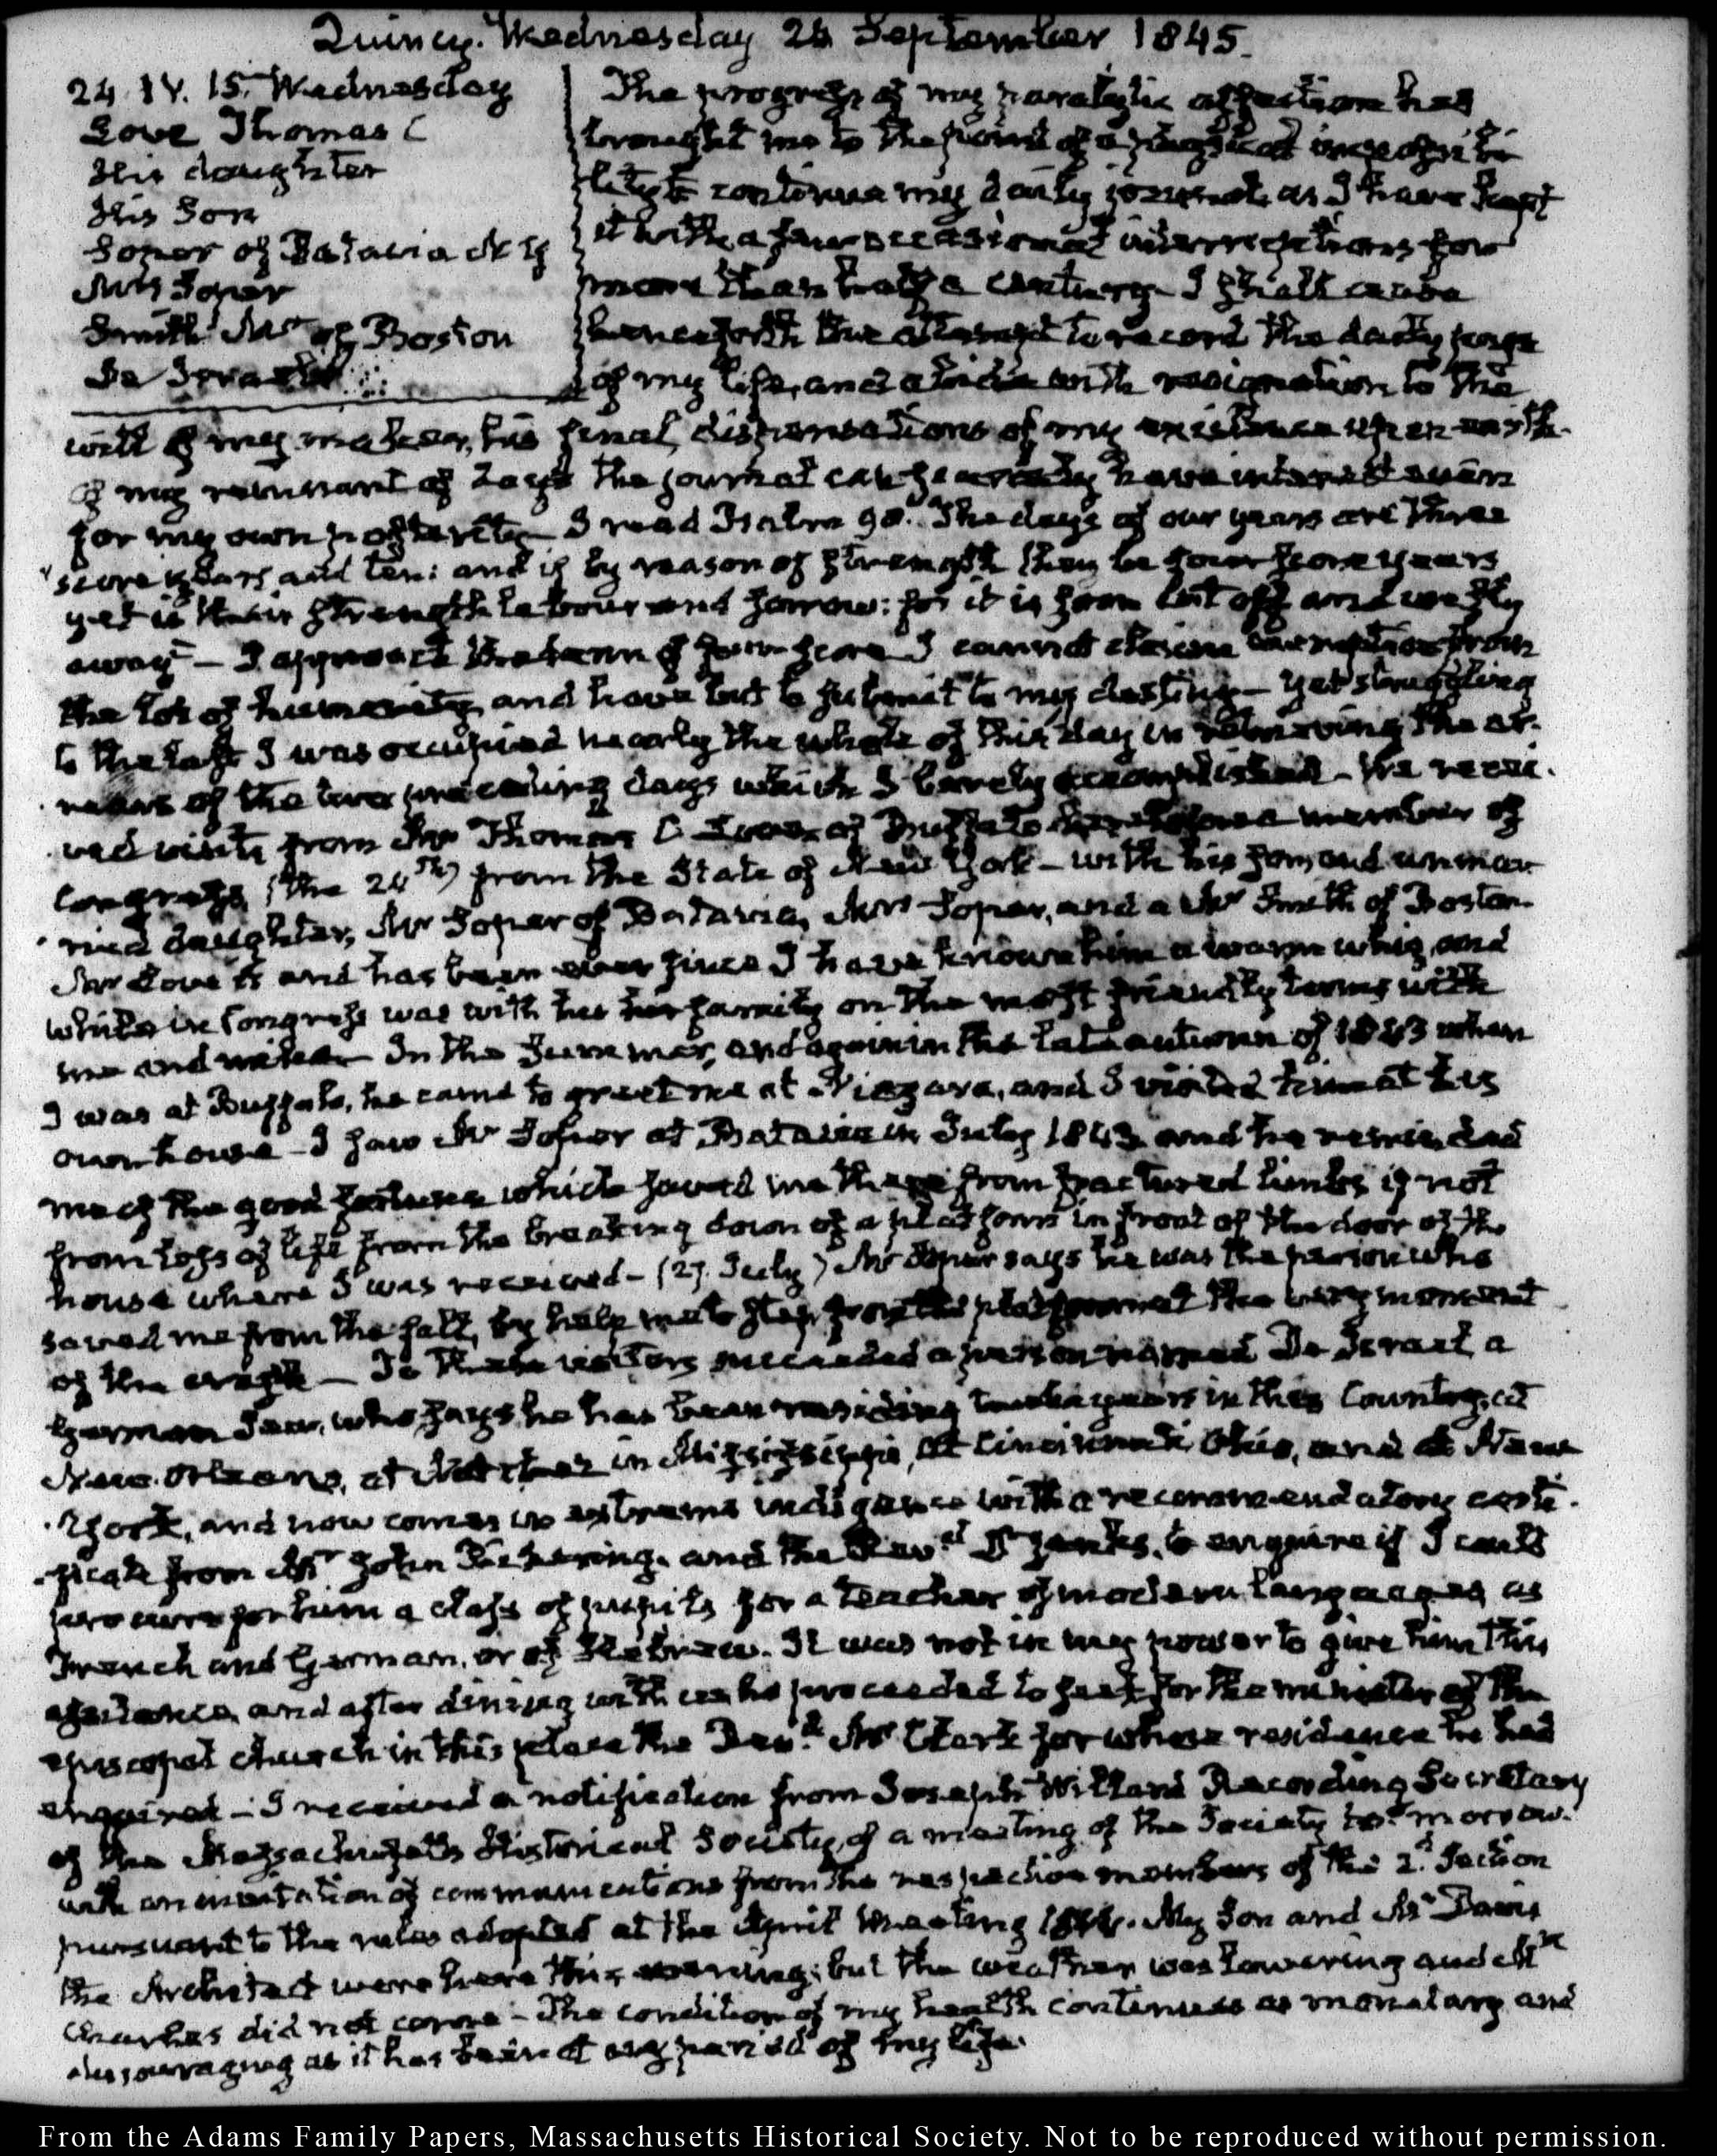 Quincy. Wednesday 24 September 1845.
24. IV. 15. Wednesday
Love Thomas C
His daughter
His Son
Soper of Batavia N Y
Mrs Soper
Smith Mr of Boston
De Israel
The progress of my paralytic affection has
brought me to the point of a physical impossibi
lity to continue my daily journal, as I have kept
it with a few occasional interruptions for
more than half a century. I shall cease
henceforth the attempt to record the daily
of my life, and abide with resignation to the
will of my maker, his final dispensations of my existence upon earth.
Of my remnant of days the journal can scarcely have interest even
for my own posterity I read Psalm 90. "The days of our years are three
"score years and ten: and if by reason of strength they be four score years
yet is their strength labour and sorrow: for it is soon cut off and we fly
away" — I approach the term of four score I cannot claim exemption from
the lot of humanity, and have but to submit to my destiny — yet struggling
to the last I was occupied nearly the whole of this day in retrieving the ar-
rears of the two preceding days which I barely accomplished — We recei-
ved visits from Mr Thomas C Love of Buffalo heretofore a member of
Congress, (the 24th) from the State of New York — with his son, and unmar
ried daughter, Mr Soper of Batavia, Mrs Soper, and a Mr Smith of Boston
Mr Love is and has been ever since I have known him a warm whig, and
while in Congress was with his family on the most friendly terms with
me and mine In the Summer, and again in the late autumn of 1843 when
I was at Buffalo, he came to greet me at Niagara, and I visited him at his
own house — I saw Mr Soper at Batavia in July 1843 and he reminded
me of the good fortune which saved me there from fractured limbs if not
from loss of life from the breaking down of a platform in front of the door of the
house where I was received — (27. July) Mr Soper says he was the person who
saved me from the fall, by help me to step from the platform at the very moment
of the crash — To these visitors succeeded a person named De Israel a
German Jew, who says he has been residing twelve years in this Country, at
New Orleans, at Natchez in Mississippi, at Cincinnati Ohio, and at New
York, and now comes in extreme indigence with a recommendatory certi-
ficate from Mr John Pickering, and the Revd Dr Jenks, to enquire if I could
procure for him a class of pupils for a teacher of modern languages as
French and German, or of Hebrew. It was not in my power to give him this
assistance, and after dining with us he proceeded to seek for the minister of the
episcopal church in this place the Revd Mr Clark for whose residence he had
enquired — I received a notification from Joseph Willard Recording Secretary
of the Massachusetts Historical Society, of a meeting of the Society to-morrow.
with an of communications from the respective members of the 2d Section
pursuant to the rules adopted at the April Meeting My Son and Mr Davis
the Architect were here this but the weather was lowering and Mrs
Charles did not come — The condition of my health continues as monitory and
discouraging as it has been at any period of my life.
From the Adams Family Papers, Massachusetts Historical Society. Not to be reproduced without permission.